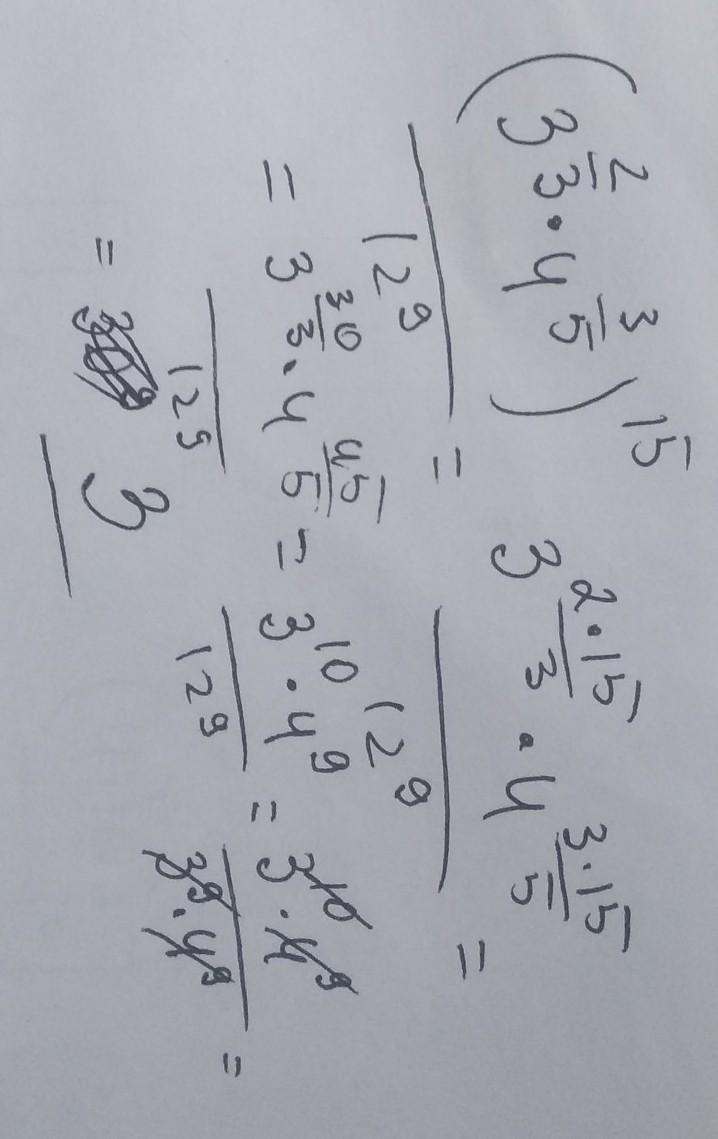 (3^(2/3) · 4^(3/5))^15 / 12^9 = 3^((2·15)/3) · 4^((3·15)/5) / 12^9 =
= 3^(30/3) · 4^(45/5) / 12^9 = 3^10 · 4^9 / 12^9 = 3^10 · 4^9 / 3^9 · 4^9 =
= 3